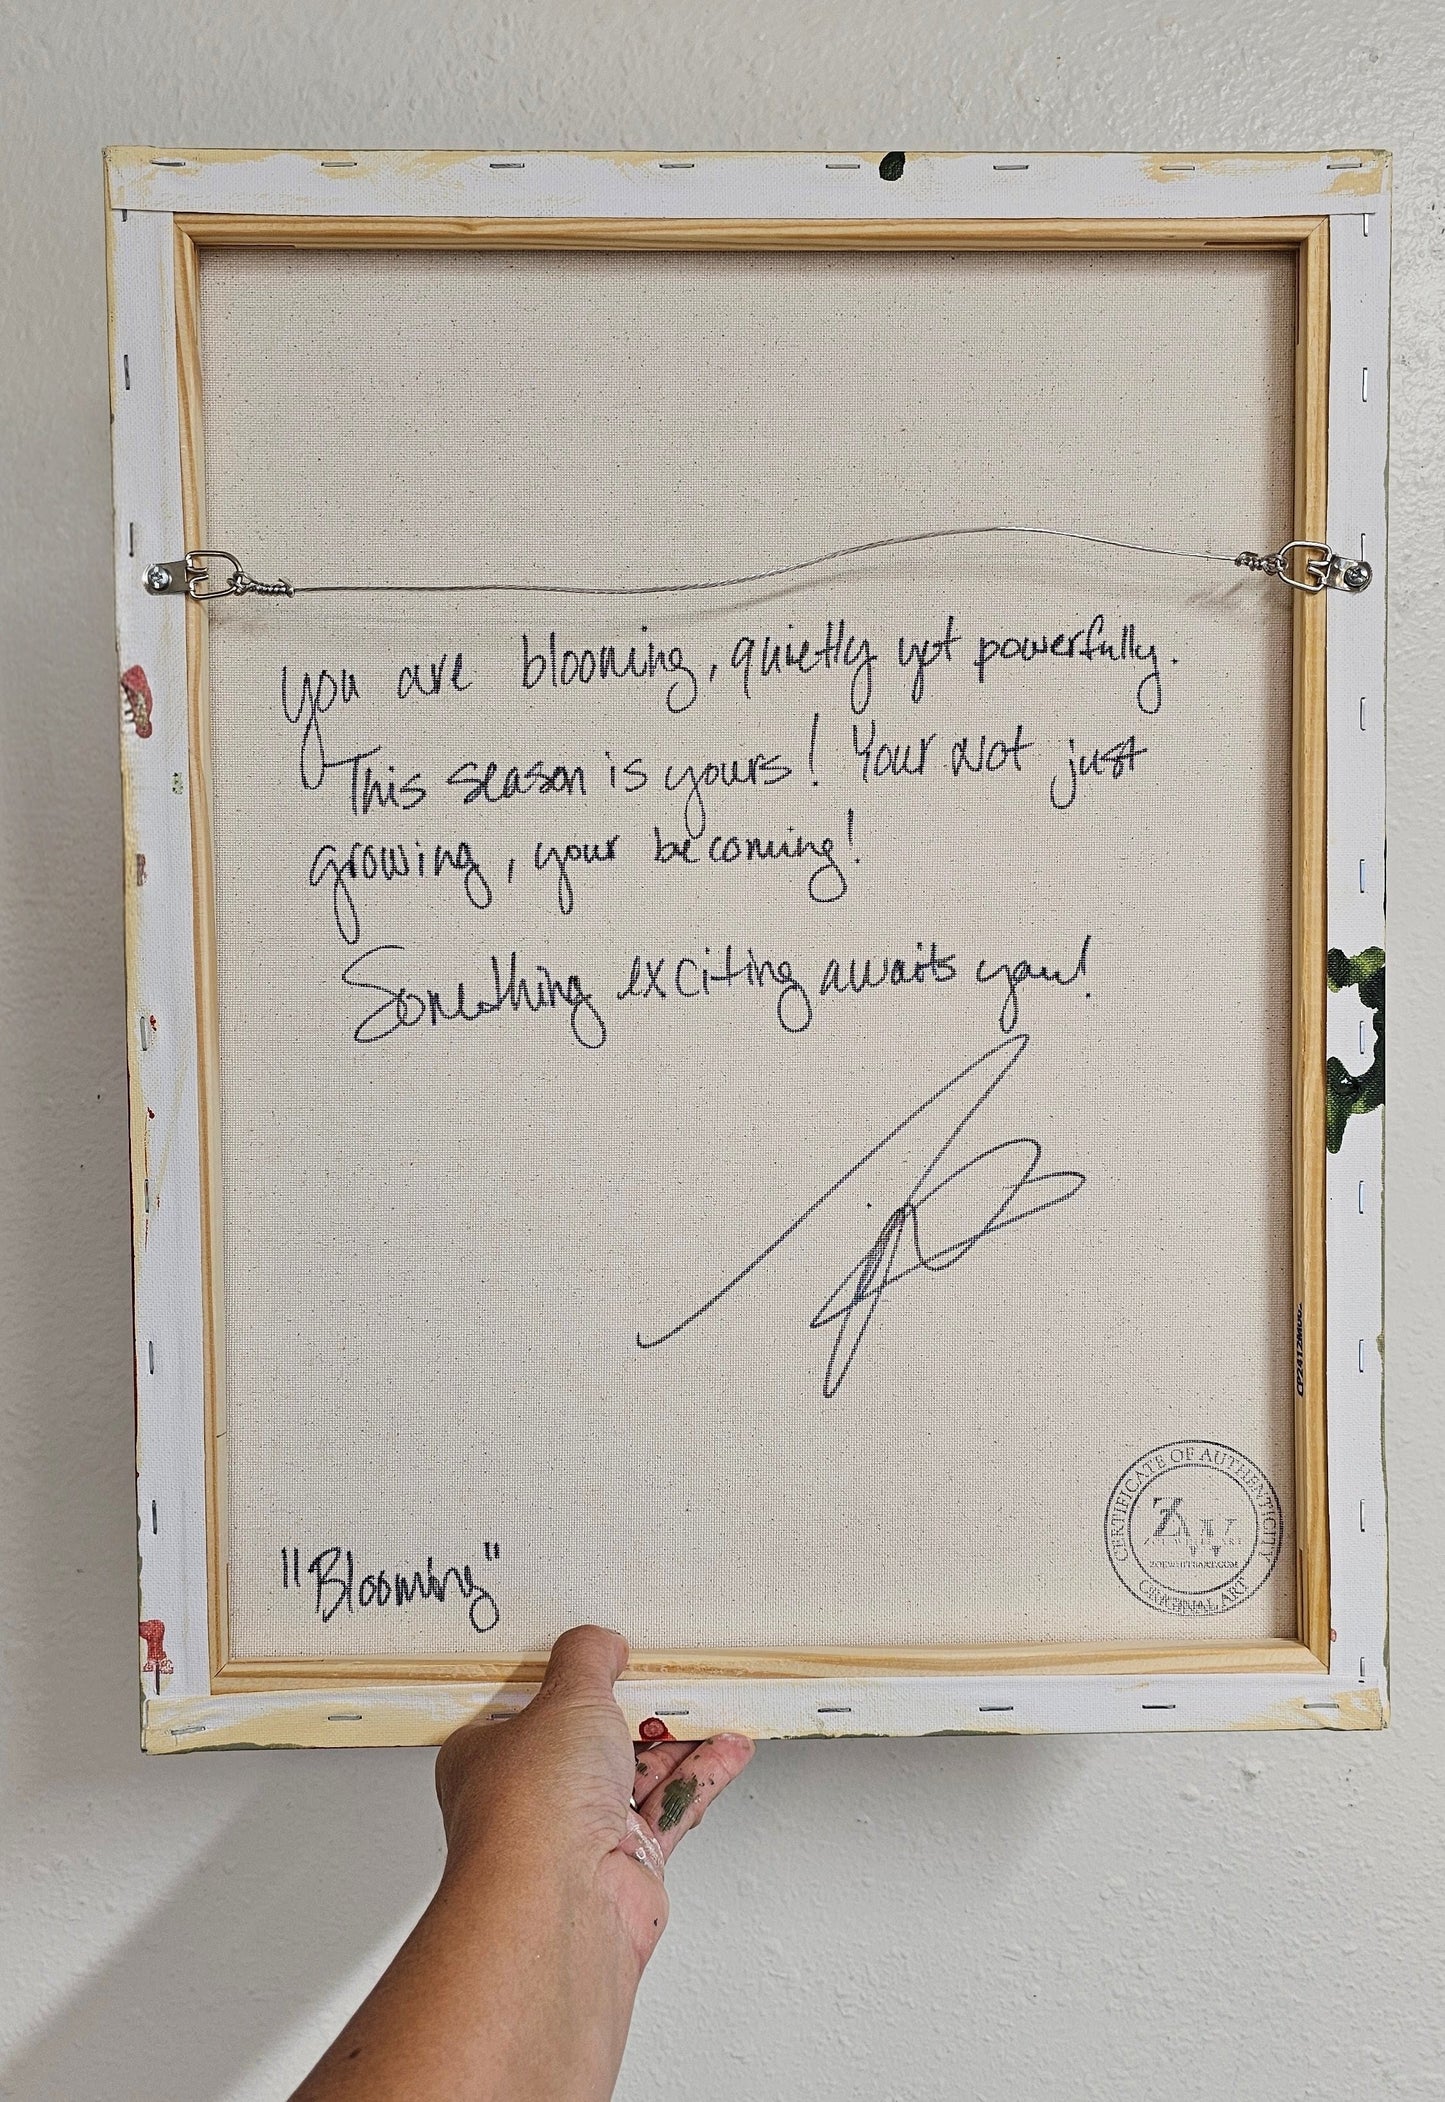 you are blooming, quietly yet powerfully.
This season is yours! Your not just
growing, your becoming!
Something exciting awaits you!
"Blooming"
CERTIFICATE OF AUTHENTICITY
ZW
ZOE WHITE ART
ZOEWHITEART.COM
ORIGINAL ART